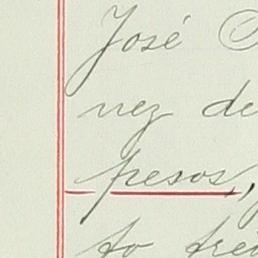 José
nez de
pesos,
to trei